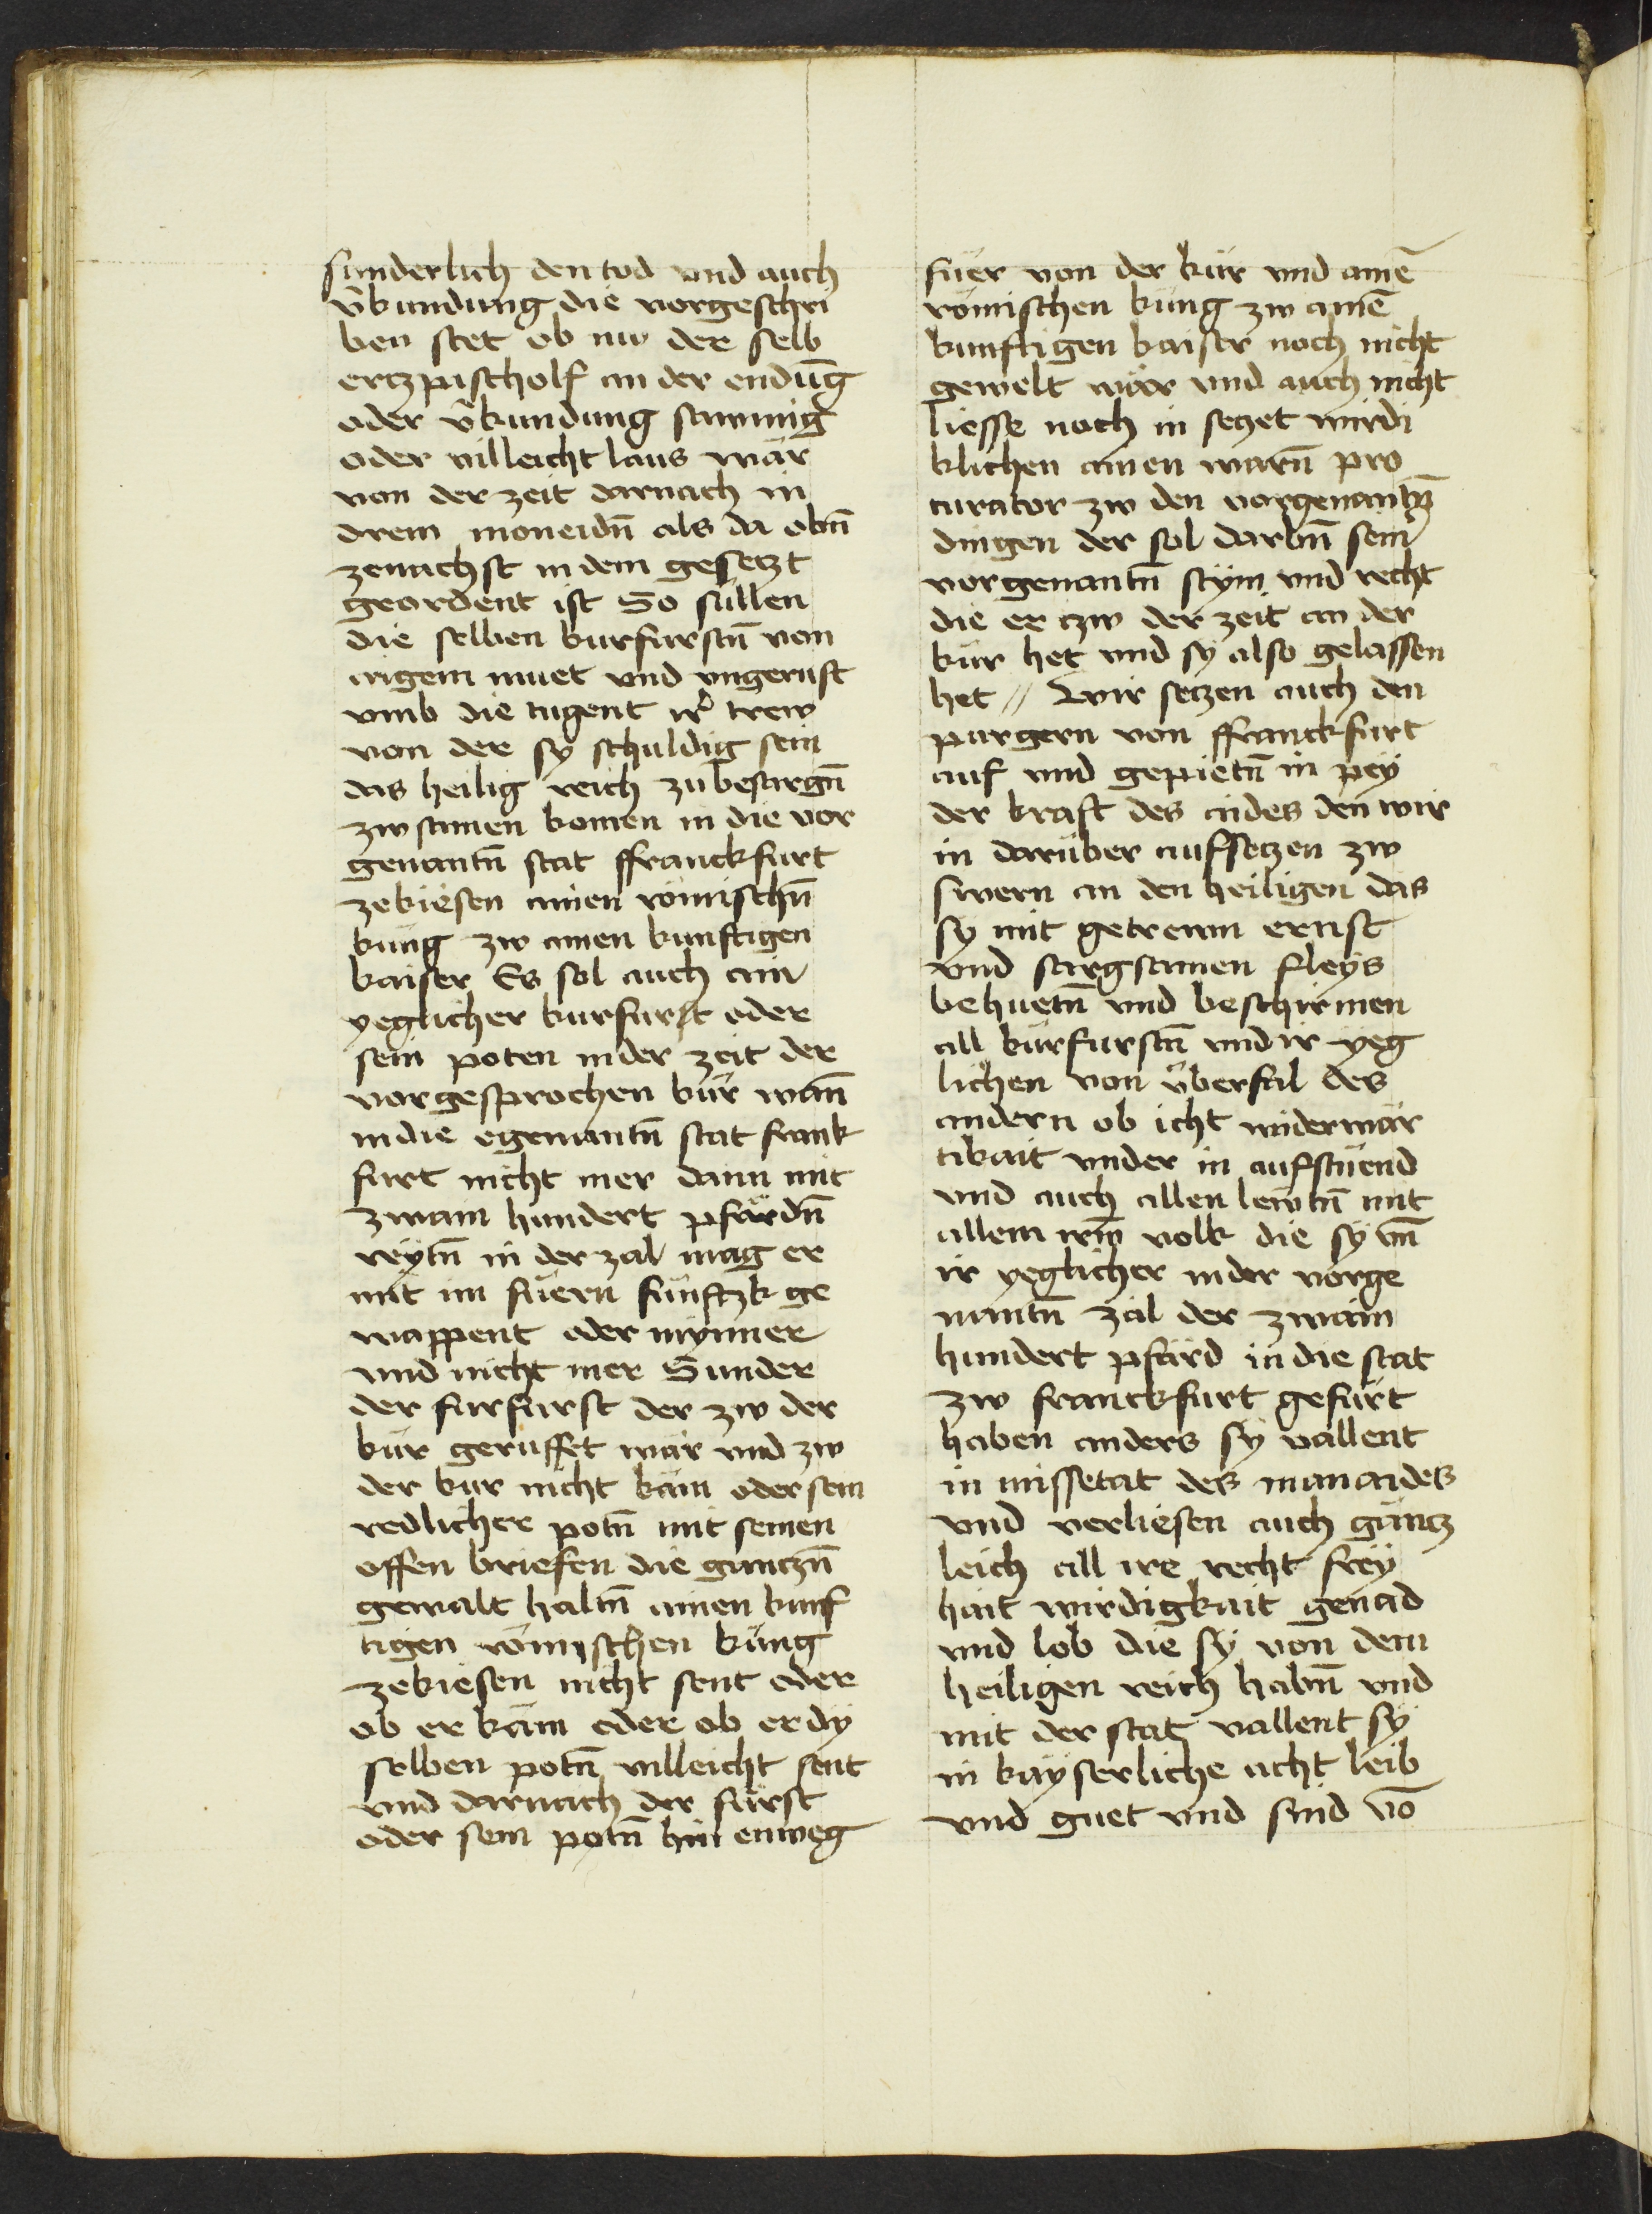 sunderlich den tod vnd auch
v̄kundung die vorgeschri
ben stet ob nw der selb
ertzpischolf an der endūg
oder v̄kundung sawmig
oder villeicht laus wär
von der zeit darnach in
drein moneidn̄ als da obn̄
zenachst in dem gesetzt
geordent ist So süllen
die selben kurfurstn̄ von
aigem muet vnd vngeruft
vmb die tugent ir̄ trew
von der sy schuldig sein
das heilig reich zu besargn̄
zwsamen komen in die vor
genantn̄ stat ffranckfurt
zekiesen ainen römischn̄
küng zw ainen kunftigen
kaiser Es sol auch ain
yeglicher kurfurst oder
sein poten in der zeit der
vorgesprochen kür wan̄
in die egenantn̄ stat frank
furt nicht mer dann mit
zwain hundert pfärdn̄
reytn̄ in der zal mag er
mit im füern fünftzk ge
wappent oder mynner
vnd nicht mer Sunder
der furfurst der zw der
kür geruffet wär vnd zw
der kur nicht käm oder sein
redlicher potn̄ mit seinen
offen briefen die gantzn̄
gewalt habn̄ ainen kunf
tigen römyschen küng
zekiesen nicht sent oder
ob er käm oder ob er dy
selben potn̄ villeicht sent
vnd darnach der fürst
oder sein potn̄ hin enweg
füer von der kür vnd ainē
römischen küng zw ainē
kunftigen kaiser noch nicht
gewelt wär vnd auch nicht
liesse noch in setzet wirdi
klichen ainen warn̄ pro
curator zw den vorgenantn̄
dingen der sol darbn̄ sein
vorgenantn̄ stym vnd recht
die er zw der zeit an der
kür het vnd sy also gelassen
het // Wir setzen auch den
purgern von ffranckfurt
auf vnd gepietn̄ in pey
der kraft des aides den wir
in darüber aufsetzen zw
swern an den heiligen das
sy mit getrewm ernst
vnd sargsamen fleys
behuetn̄ vnd beschirmen
all kürfurstn̄ vnd ir yeg
lichen von vberfal des
andern ob icht widerwär
tikait vnder in aufstuend
vnd auch allen lewtn̄ mit
allem irm̄ volk die sy vn̄
ir yeglicher in der vorge
nantn̄ zal der zwain
hundert pfärd in die stat
zw franckfurt gefürt
haben anders sy vallent
in missetat des manaides
vnd verliesen auch gäntz
leich all ire recht frey
hait wirdigkait genad
vnd lob die sy von dem
heiligen reich habn̄ vnd
mit der stat vallent sy
in kayserliche acht leib
vnd guet vnd sind vō